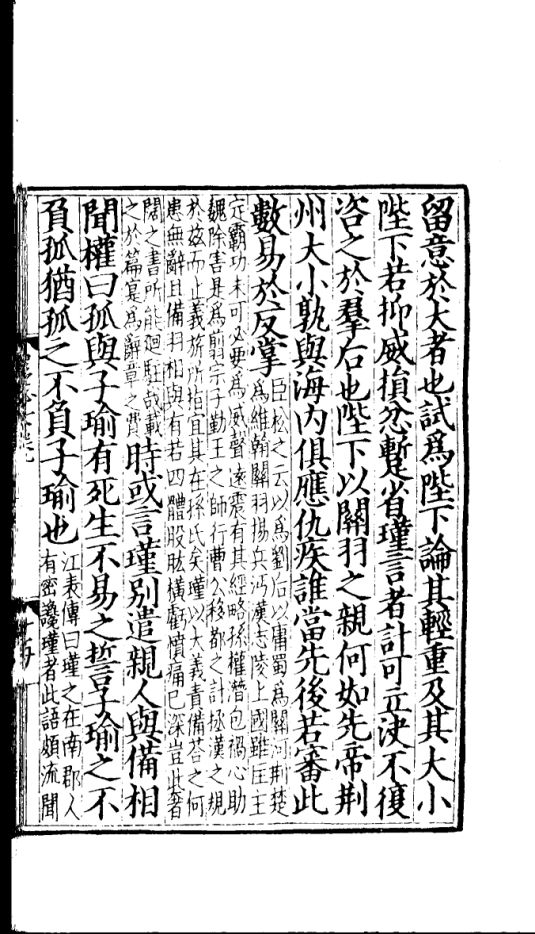 留意於大者也試爲陛下論其輕重及其大小
陛下若抑威損忿蹔省瑾言者計可立決不復
咨之於羣后也陛下以關羽之親何如先帝荆
州大小孰與海内俱應仇疾誰當先後若審此
數易於反掌
臣松之云以爲劉后以庸蜀爲關河荆楚
爲維翰關羽揚兵沔漢志陵上國雖匡主
定霸功未可必要爲威聲遠震有其經略孫權潛包禍心助
魏除害是爲翦宗子勤王之師行曹公移都之計拯漢之規
於兹而止義旗所指宜其在孫氏矣瑾以大義責備荅之何
患無辭且備羽相與有若四體股肱橫虧憤痛已深豈此奢
闊之書所能廻駐哉載
之於篇寔爲辭章之費
時或言瑾別遣親人與備相
聞權曰孤與子瑜有死生不易之誓子瑜之不
負孤猶孤之不負子瑜也
江表傳曰瑾之在南郡人
有密讒瑾者此語頗流聞